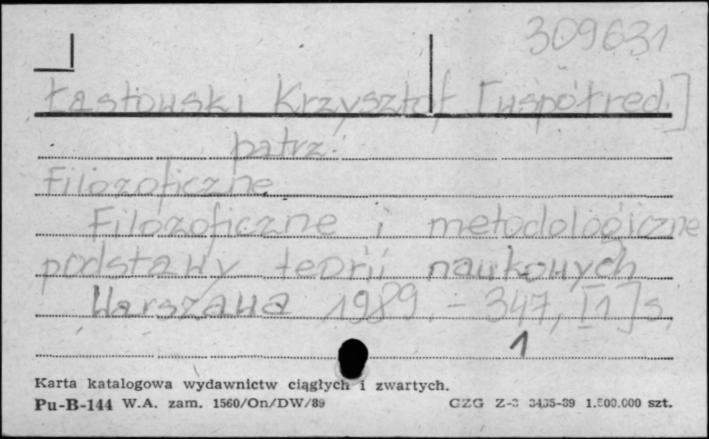 309631
Łastowski Krzysztof [współred.]
patrz:
Filozoficzne
Filozoficzne i metodologiczne
podstawy teorii naukowych
Warszawa 1989. - 347, [1] s.
1
Karta katalogowa wydawnictw ciągłych i zwartych.
Pu-B-144 W.A. zam. 1560/On/DW/89 CZG Z-3 3435-89 1.500.000 szt.